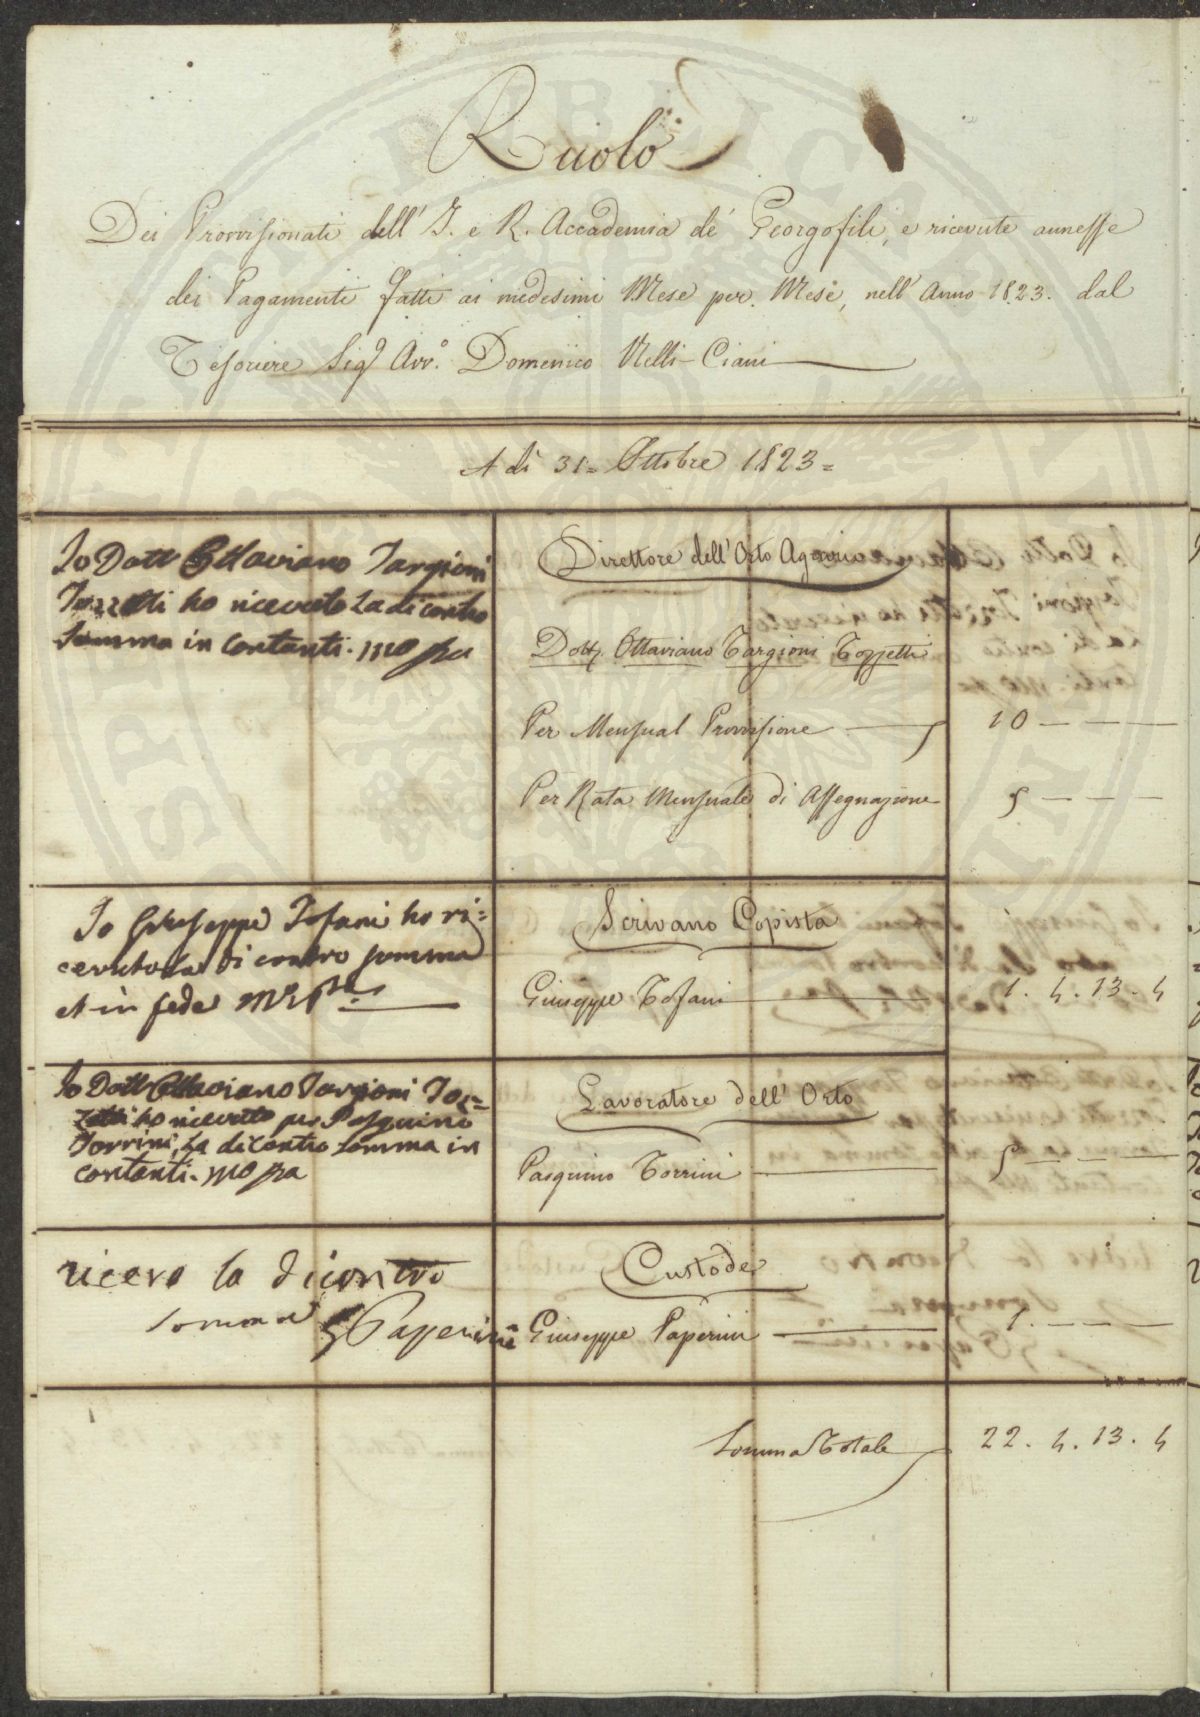 Ruolo
Dei Provvisionati dell' I. e R. Accademia de' Georgofili, e ricevute annesse
dei Pagamenti fatti ai medesimi Mese per Mese, nell' Anno 1823. dal
Tesoriere Sigr Avv.o Domenico Nelli-Ciani
A di 31= Ottobre 1823=
Io Dott Ottaviano Targioni
Tozzetti ho ricevuto La di contro
Somma in Contanti. mo pa
Direttore dell' Orto Agrario
Dottr. Ottaviano Targioni Tozzetti
Per Mensual Provvisione 10 - - -
Per Rata Mensuale di Assegnazione 5 - - -
Io Giuseppe Tofani ho ri=
cevuto la di contro somma
et in fede Mo Pa
Scrivano Copista
Giuseppe Tofani 1. 4. 13. 4
Io Dott Ottaviano Targioni Toz=
zetti ho ricevuto per Pasquino
Torrini, La di Contro Somma in
contanti. mo pa
Lavoratore dell' Orto
Pasquino Torrini 5 - - -
ricevo la dicontro
somma G Paperini
Custode
Giuseppe Paperini 1. - - -
Somma Totale 22. 4. 13. 4